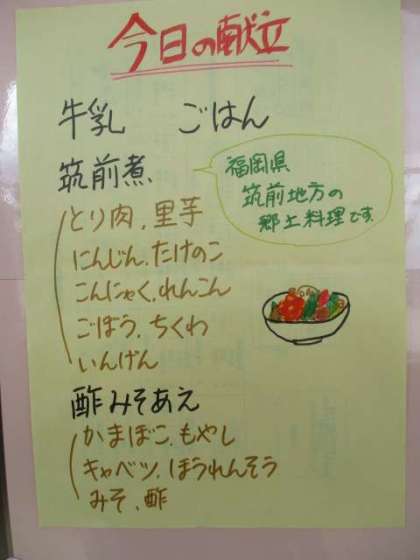 今日の献立
牛乳　ごはん
筑前煮
福岡県
筑前地方の
郷土料理です.
とり肉、里芋
にんじん、たけのこ
こんにゃく、れんこん
ごぼう、ちくわ
いんげん
酢みそあえ
かまぼこ、もやし
キャベツ、ほうれんそう
みそ、酢